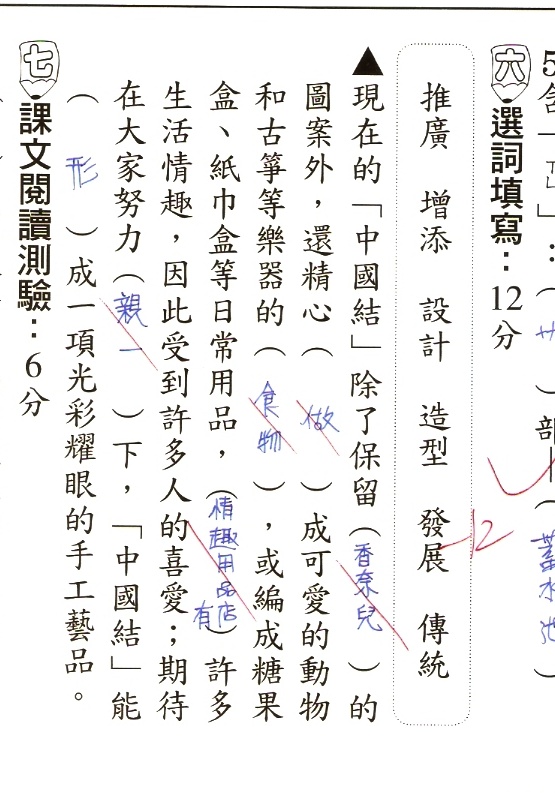 5含「卭」：（艹）部－（蓄水池）
六 選詞填寫：12分
推廣 增添 設計 造型 發展 傳統
-12
▲現在的「中國結」除了保留（香奈兒）的
圖案外，還精心（做）成可愛的動物
和古箏等樂器的（食物），或編成糖果
盒、紙巾盒等日常用品，（情趣用品店有）許多
生活情趣，因此受到許多人的喜愛；期待
在大家努力（親一）下，「中國結」能
（形）成一項光彩耀眼的手工藝品。
七 課文閱讀測驗：6分